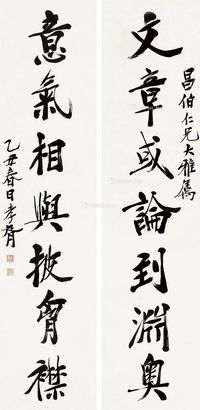 文章或論到淵奧
昌伯仁兄大雅屬
意氣相與披胷襟
乙丑春日孝胥